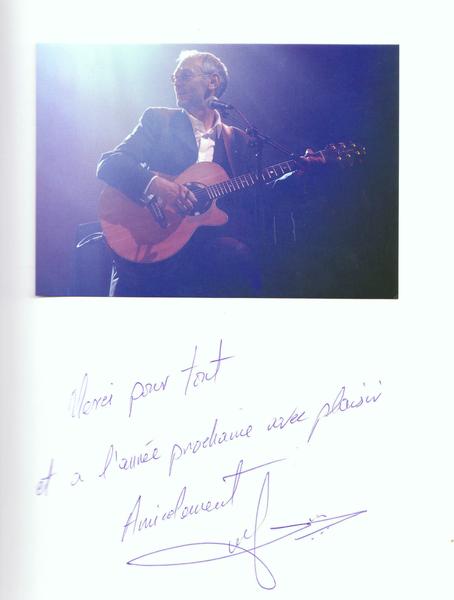 Merci pour tout
et a l'année prochaine avec plaisir
Amicalement